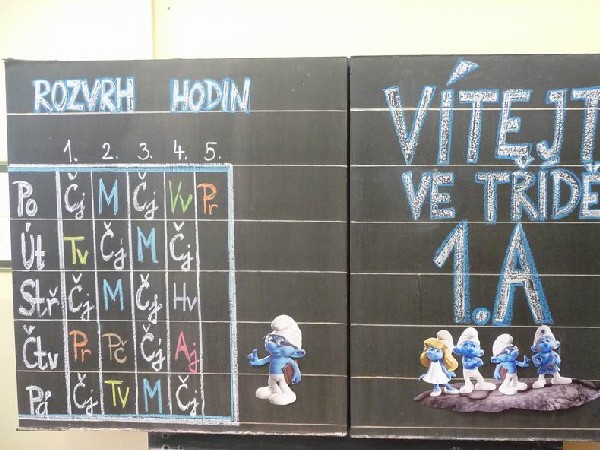 ROZVRH HODIN
1. 2. 3. 4. 5.
Po Čj M Čj Vv Pr
Út Tv Čj M Čj
Stř Čj M Čj Hv
Čtv Pr Pč Čj Aj
Pá Čj Tv M Čj
VÍTEJT
VE TŘÍDĚ
1.A